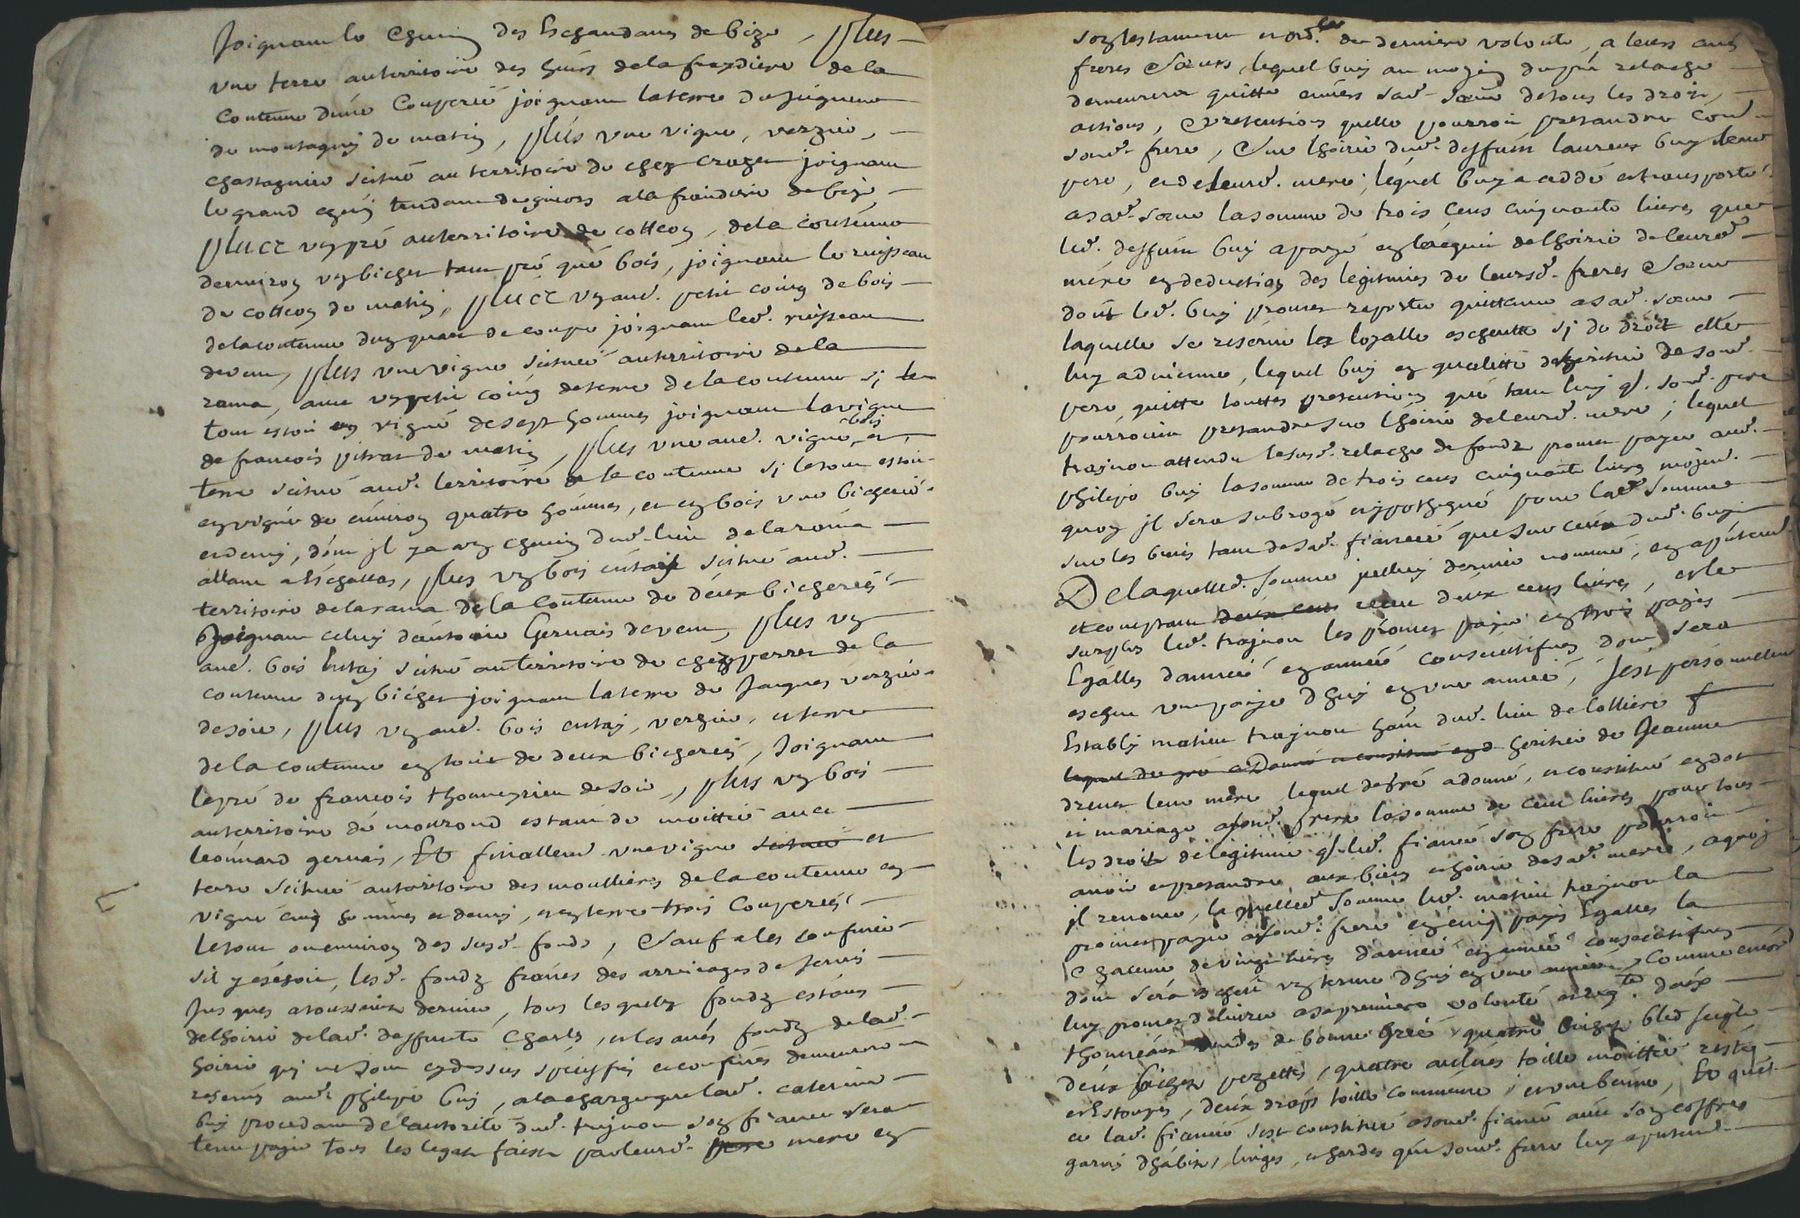 Joignant le chemin des Echaudans de bize, plus
une terre au territoire des huirs de la freydiere de la
contenue d'une couperée joignant la terre de
de montagny de matin, plus une vigne, verger,
chastagnier scitué au territoire de chez crozet joignant
le grand chemin tendant de giuors a la franduire de bize
plus un pré au territoire de cotteon, de la contenue
d'environ un bichet tant pré que bois, joignant le ruisseau
de cotteon de matin, plus un aud. petit coing de bois
de la contenue d'un quart de coupe joignant led. ruisseau
de vent, plus une vigne scituée au territoire de la
rama, avec un petit coing de terre de la contenue si le
tout estoit en vigne de sept hommes joignant la vigne
de francois pitrat de matin, plus une aud. vigne, bois, et
terre scitué aud. territoire de la contenue si le tout estoit
en vigne de environ quatre hommes, et en bois une bicherée
et demy, dont il y a un chemin dud. lieu de la rama
allant a Echallas, plus un bois entais scitué aud.
territoire de la rama de la contenue de deux bicherées
Joignant celuy d'antoine Gervais de vent, plus un
aud. bois entais scitué au territoire de chez perret de la
contenue d'un bichet joignant la terre de Jacques verzier
de soir, plus un aud. bois entais, verzier, et terre
de la contenue en tout de deux bicherées, Joignant
le pré de francois thonnerieu de soir, plus un bois
au territoire de montrond estant de moittié avec
leonnard gervais, Et finallement une vigne scituée et
terre scitué au territoire des mouilieres de la contenue en
vigne cinq hommes et demy, et en terre trois couperées
le tout ou environ des susd. fonds, sauf a les confiner
sil y eschoit, lesd. fondz francs des arreirages de servis
Jusques a toussaint dernier, tous lesquelz fondz estans
de lhoirie de lad. deffunte Charle, et les autres fondz de lad.
hoirie qui ne sont cy dessus speciffiés et confinés demeureront
reservés aud. philipe buy, a la charge que lad. caterine
buy procedant de l'autorité dud. trajnou son fiancé sera
tenue payer tous les legats faicts par leurd. pere mere en
son testament et ord. de derniere volonté, a leurs autres
freres et soeurs, lequel buy au moyen du pnt relache
demeurera quitte envers sad. soeur de tous les droits,
actions, et pretentions quelle pourroit pretandre contre
sond. frere, sur lhoirie dud. deffunt laurens buy leur
pere, et de leurd. mere, lequel buy a ceddé et transporté
a sad. soeur la somme de trois cens cinquante livres que
led. deffunt buy a payé en lacquit de lhoirie de leurd.
mere en deduction des legitimes de leursd. freres et soeurs
dont led. buy promet raporter quittance a sad. soeur
laquelle se reserve la loyalle escheutte si de droit elle
luy advienne, lequel buy en qualitté d'heritier de sond.
pere, quitte touttes pretentions que tant luy q. sond. pere
pourroient pretandre sur lhoirie de leurd. mere; lequel
trajnou attendu le susd. relache de fondz promet payer aud.
philipe buy la somme de trois cens cinquante livres moyen.
quoy il sera subrogé en hypotheque pour lad. somme
sur les biens tant de sad. fiancée que sur ceux dud. buy
De laquelled. somme jcelluy dernier nommé, en a
et comptant deux cens receu deux cens livres, et le
surplus led. trajnou les promet payer en trois payes
Egalles d'année en année consecutifves dont sera
escheu une paye d'huy en une année, s'est personnellem.
Establi matieu trajnou habit. dud. lieu de lolliere
lequel de gré a donné et constitué en d heritier de Jeanne
drevet leur mere, lequel de gré a donné, et constitué en dot
et mariage a sond. frere la somme de cent livres pour tous
les droits de legitime q. led. fiancé son frere pourroit
avoir et pretandre aux biens et hoirie de sad. mere, a quoy
il renonce, la quelled. somme led. matieu trajnou la
promet payer a sond. frere en cinq payes Egalles la
chacune de vingt livres d'année en année consecutifves
dont sera escheu un terme d'huy en une année, comme encore
luy promet delivrer a sa premiere volonté et req.te deux
thonneaux de bonne quatre bichets bled seigle
deux , quatre aulnes toille moittié rista
et Estoupes, deux draps toille commune, et en
et lad. fiancée s'est constitué a sond. fiancé avec son coffre
garni d'habits, linges, et hardes que sond. frere luy a